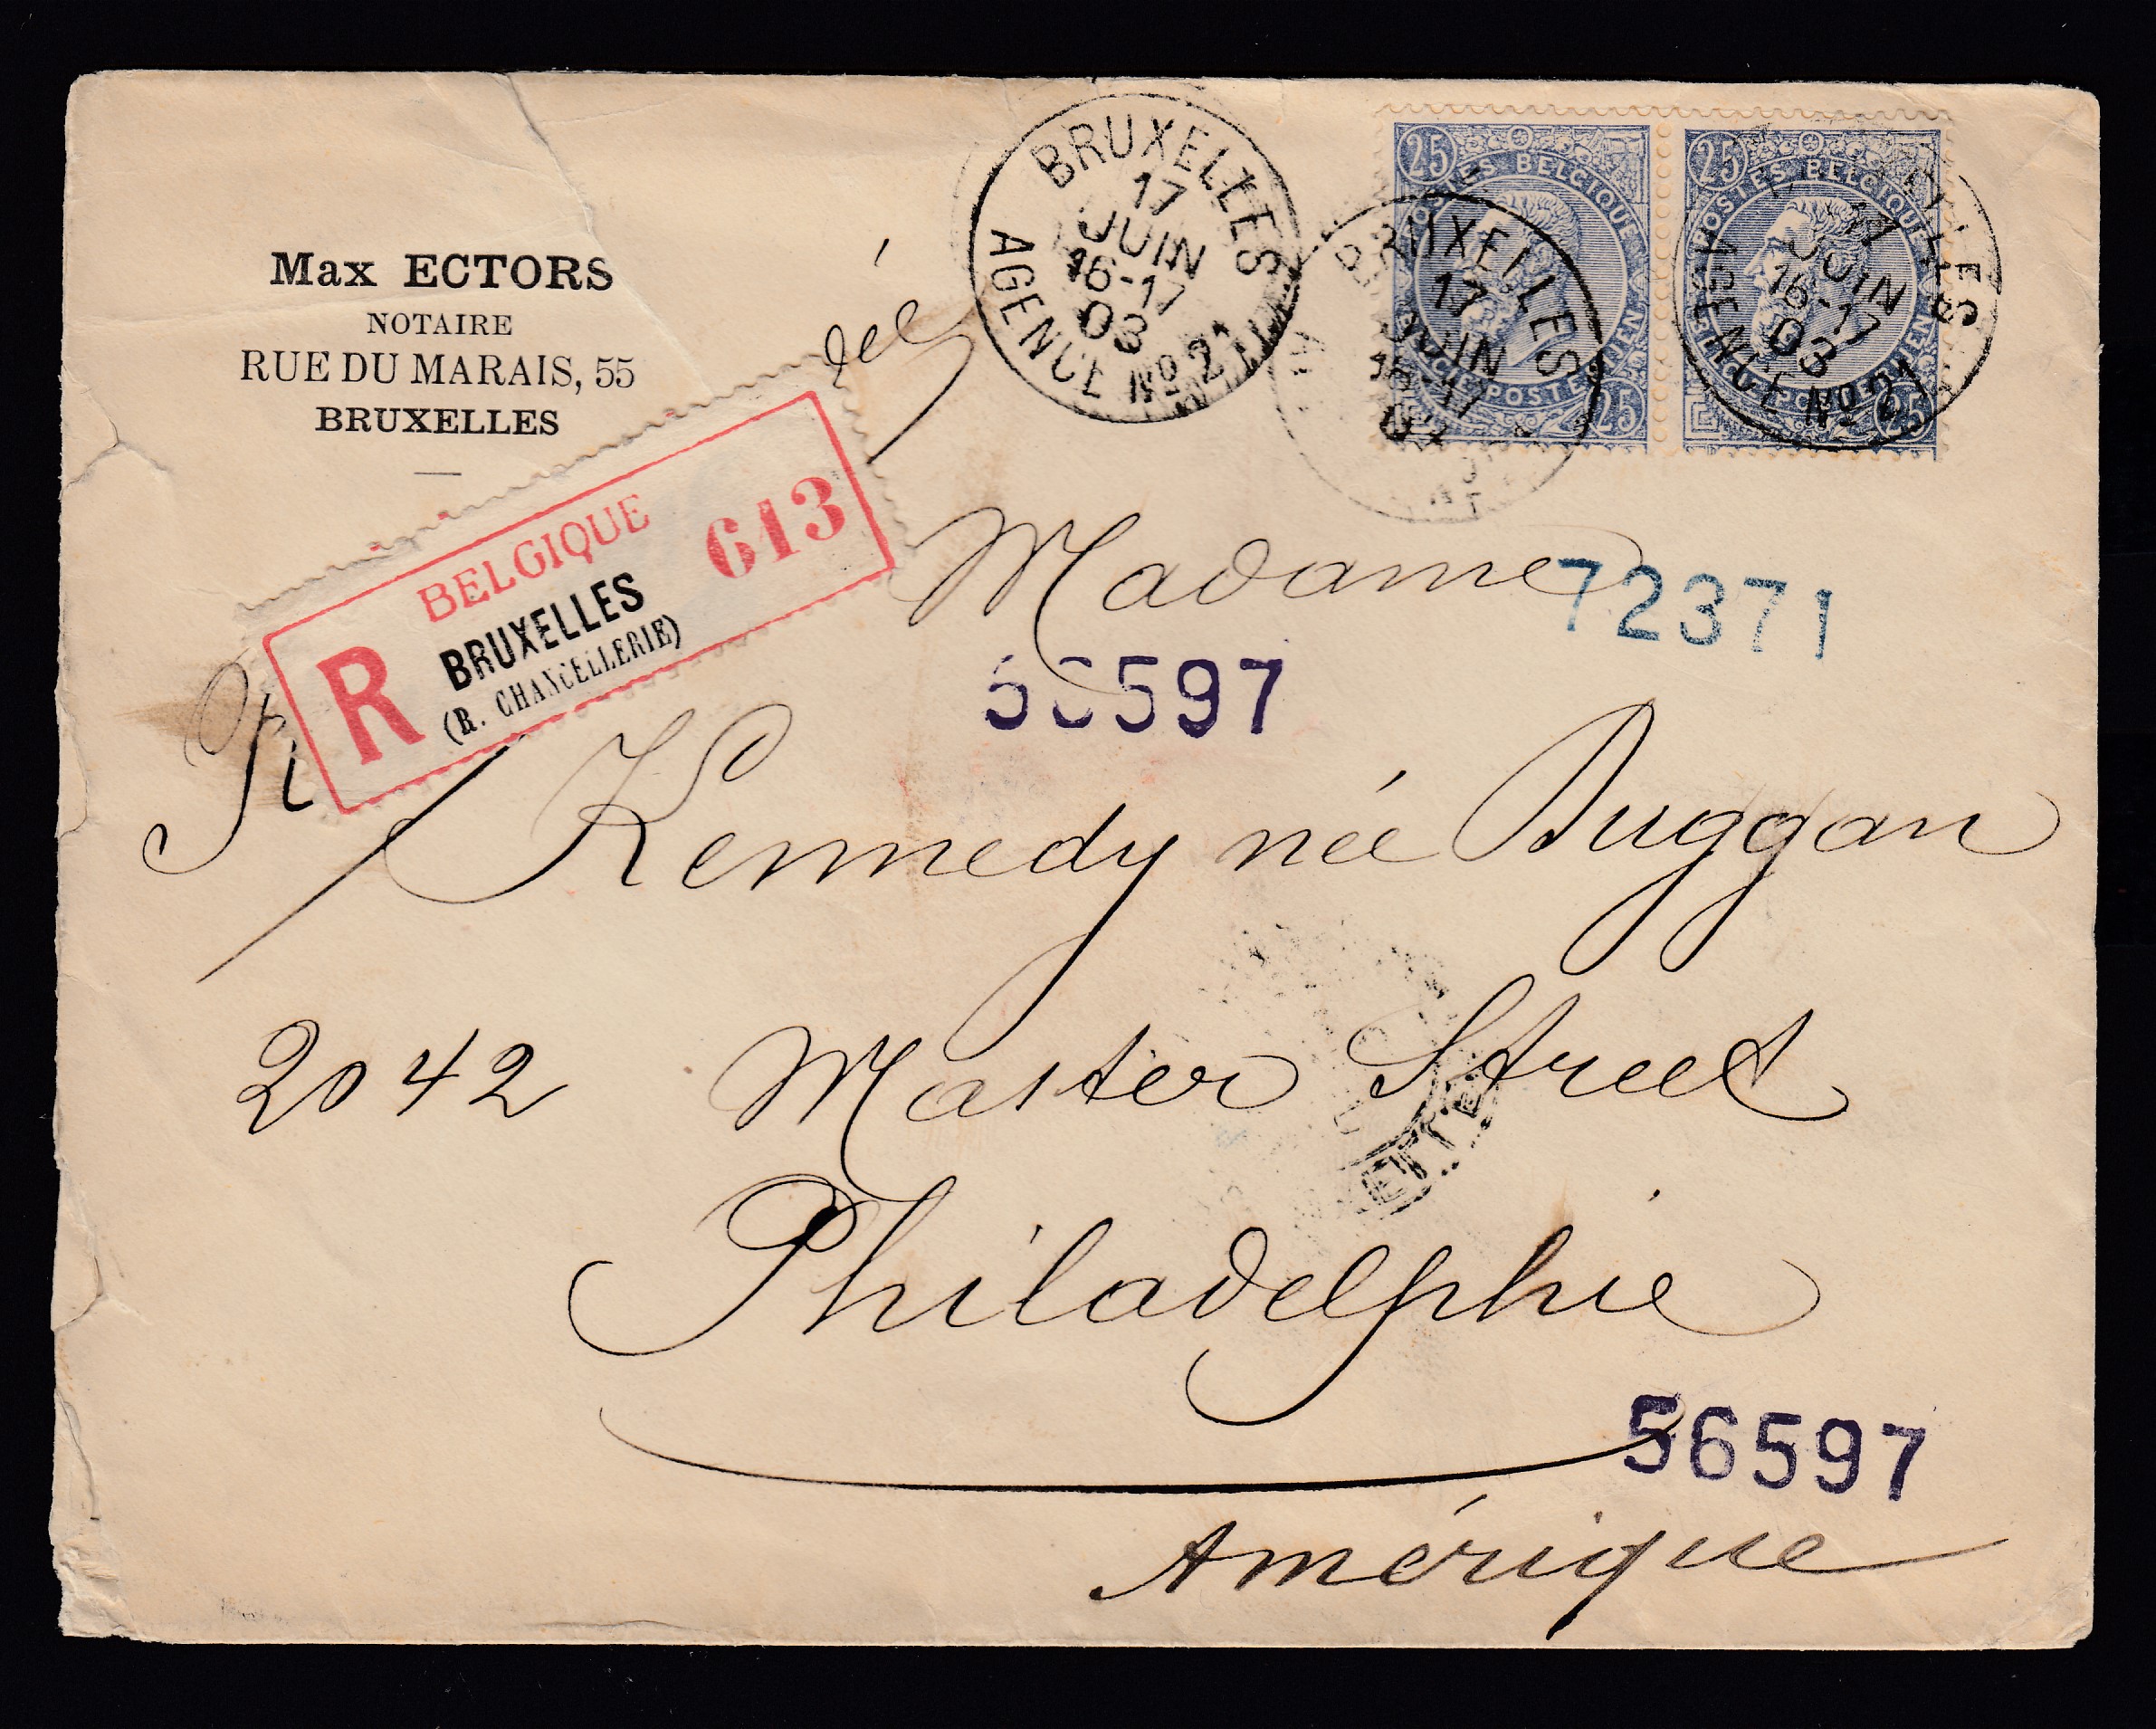 Max ECTORS
NOTAIRE
RUE DU MARAIS, 55
BRUXELLES
BRUXELLES
17
JUIN
16-17
03
AGENCE No 21
25 25
POSTES BELGIQUE
25 25
POSTES BELGIQUE
BRUXELLES
17
JUIN
16-17
03
17
JUIN
16-17
03
AGENCE No 21
BELGIQUE
R BRUXELLES 613
(R. CHANCELLERIE)
Madame
72371
56597
Kennedy née Duggan
2042 Master Street
Philadelphie
56597
Amérique